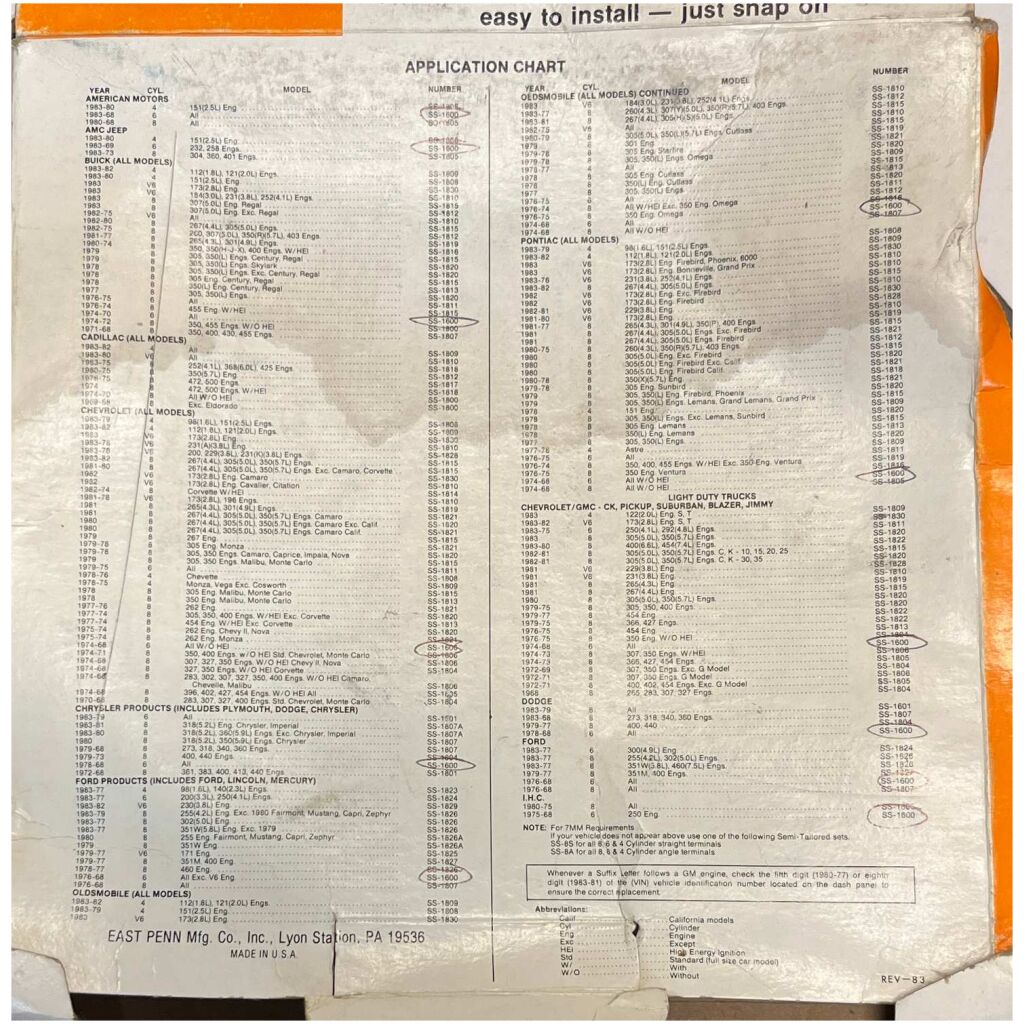 easy to install — just snap on
APPLICATION CHART
YEAR CYL. MODEL NUMBER
AMERICAN MOTORS
1983-80 4 151(2.5L) Eng.
1983-68 6 All SS-1600
1980-68 8 All
AMC JEEP
1983-80 4 151(2.5L) Eng.
1983-69 6 232, 258 Engs. SS-1600
1983-73 8 304, 360, 401 Engs. SS-1805
BUICK (ALL MODELS)
1983-82 4 112(1.8L), 121(2.0L) Engs. SS-1809
1983-80 4 151(2.5L) Eng. SS-1808
1983 V6 173(2.8L) Eng. SS-1830
1983 V6 184(3.0L), 231(3.8L), 252(4.1L) Engs. SS-1810
1983 8 307(5.0L) Eng. Regal SS-1815
1983 8 307(5.0L) Eng. Exc. Regal SS-1812
1982-75 V6 All SS-1810
1982-80 8 267(4.4L), 305(5.0L) Engs. SS-1815
1982-75 8 260, 307(5.0L), 350(R)(5.7L), 403 Engs. SS-1812
1981-77 8 265(4.3L), 301(4.9L) Engs. SS-1819
1980-74 8 350, 350(H-J-X), 400 Engs. W/HEI SS-1818
1979 8 350, 350(L) Engs. Century, Regal SS-1815
1979 8 305, 350(L) Engs. Skylark SS-1820
1978 8 305, 350(L) Engs. Exc. Century, Regal SS-1820
1978 8 305 Eng. Century, Regal SS-1815
1978 8 350(L) Eng. Century, Regal
1977 8 305, 350(L) Engs. SS-1820
1976-75 6 All SS-1811
1976-74 8 455 Eng. W/HEI
1974-70 6 All SS-1600
1974-72 8 350, 455 Engs. W/O HEI
1971-68 8 350, 400, 430, 455 Engs. SS-1807
CADILLAC (ALL MODELS)
1983-82 4 All SS-1809
1983-80 V6 All SS-1810
1983-75 8 252(4.1L), 368(6.0L), 425 Engs. SS-1818
1980-75 8 350(5.7L) Eng. SS-1812
1976-75 8 472, 500 Engs. SS-1817
1974 8 472, 500 Engs. W/HEI SS-1818
1974-70 8 All W/O HEI SS-1800
8 Exc. Eldorado SS-1800
CHEVROLET (ALL MODELS)
1983-79 4 98(1.6L), 151(2.5L) Engs. SS-1808
1983-82 4 112(1.8L), 121(2.0L) Engs. SS-1809
1983 V6 173(2.8L) Eng. SS-1830
1983-78 V6 231(A)(3.8L) Eng. SS-1810
1983-78 V6 200, 229(3.8L), 231(K)(3.8L) Engs. SS-1828
1983-82 8 267(4.4L), 305(5.0L), 350(5.7L) Engs. SS-1815
1981-80 8 267(4.4L), 305(5.0L), 350(5.7L) Engs. Exc. Camaro, Corvette SS-1815
1982 V6 173(2.8L) Eng. Camaro SS-1830
1982 V6 173(2.8L) Eng. Cavalier, Citation SS-1810
1982-74 8 Corvette W/HEI SS-1814
1981-78 V6 173(2.8L), 196 Engs. SS-1810
1981 8 265(4.3L), 301(4.9L) Engs. SS-1819
1981 8 267(4.4L), 305(5.0L), 350(5.7L) Engs. Camaro SS-1821
1980 8 267(4.4L), 305(5.0L), 350(5.7L) Engs. Camaro Exc. Calif. SS-1820
1980 8 267(4.4L), 305(5.0L), 350(5.7L) Engs. Camaro Calif. SS-1821
1979 8 267 Eng. SS-1815
1979-78 8 305 Eng. Monza SS-1821
1979-78 8 305, 350 Engs. Camaro, Caprice, Impala, Nova SS-1820
1979 8 305, 350 Engs. Malibu, Monte Carlo SS-1815
1979-75 6 All SS-1811
1978-76 4 Chevette SS-1808
1978-75 4 Monza, Vega Exc. Cosworth SS-1809
1978 8 305 Eng. Malibu, Monte Carlo SS-1815
1978 8 350 Eng. Malibu, Monte Carlo SS-1813
1977-76 8 262 Eng. SS-1821
1977-74 8 305, 350, 400 Engs. W/HEI Exc. Corvette SS-1820
1977-74 8 454 Eng. W/HEI Exc. Corvette SS-1813
1975-74 8 262 Eng. Chevy II, Nova SS-1820
1975 8 262 Eng. Monza
1974-68 6 All W/O HEI
1974-71 8 350, 400 Engs. W/O HEI Std. Chevrolet, Monte Carlo
1974-68 8 307, 327, 350 Engs. W/O HEI Chevy II, Nova SS-1806
1974-68 8 327, 350 Engs. W/O HEI Corvette SS-1804
1974-68 8 283, 302, 307, 327, 350, 400 Engs. W/O HEI Camaro, Chevelle, Malibu SS-1806
1974-68 8 396, 402, 427, 454 Engs. W/O HEI All
1970-68 8 283, 307, 327, 400 Engs. Std. Chevrolet, Monte Carlo SS-1804
CHRYSLER PRODUCTS (INCLUDES PLYMOUTH, DODGE, CHRYSLER)
1983-79 6 All SS-1601
1983-81 8 318(5.2L) Eng. Chrysler, Imperial SS-1807A
1983-80 8 318(5.2L), 360(5.9L) Engs. Exc. Chrysler, Imperial SS-1807A
1980 8 318(5.2L), 350(5.9L) Engs. Chrysler SS-1807
1979-68 8 273, 318, 340, 360 Engs. SS-1807
1979-73 8 400, 440 Engs.
1978-68 6 All SS-1600
1972-68 8 361, 383, 400, 413, 440 Engs. SS-1801
FORD PRODUCTS (INCLUDES FORD, LINCOLN, MERCURY)
1983-77 4 98(1.6L), 140(2.3L) Engs. SS-1823
1983-77 6 200(3.3L), 250(4.1L) Engs. SS-1824
1983-82 V6 230(3.8L) Eng. SS-1829
1983-79 8 255(4.2L) Eng. Exc. 1980 Fairmont, Mustang, Capri, Zephyr SS-1826
1983-77 8 302(5.0L) Eng. SS-1826
1983-77 8 351W(5.8L) Eng. Exc. 1979 SS-1826
1980 8 255 Eng. Fairmont, Mustang, Capri, Zephyr SS-1826A
1979 8 351W Eng. SS-1826A
1979-77 V6 171 Eng. SS-1825
1979-77 8 351M, 400 Eng. SS-1827
1979-77 8 460 Eng.
1976-68 6 All Exc. V6 Eng. SS-1600
1976-68 8 All SS-1807
OLDSMOBILE (ALL MODELS)
1983-82 4 112(1.8L), 121(2.0L) Engs. SS-1809
1983-79 4 151(2.5L) Eng. SS-1808
1983 V6 173(2.8L) Eng. SS-1830
EAST PENN Mfg. Co., Inc., Lyon Station, PA 19536
MADE IN U.S.A.
YEAR CYL. MODEL NUMBER
OLDSMOBILE (ALL MODELS) CONTINUED
1983 V6 184(3.0L), 231(3.8L), 252(4.1L) Engs. SS-1810
1983-77 8 260(4.3L), 307(Y)(5.0L), 350(R)(5.7L), 403 Engs. SS-1812
1983-81 8 267(4.4L), 305(H)(5.0L) Engs. SS-1815
1982-75 V6 All SS-1810
1980-79 8 305(5.0L), 350(L)(5.7L) Engs. Cutlass SS-1815
1979 8 301 Eng. SS-1819
1979-78 8 305 Eng. Starfire SS-1821
1979-78 8 305, 350(L) Engs. Omega
1978-77 4 All
1978 8 305 Eng. Cutlass SS-1815
1978 8 350(L) Eng. Cutlass SS-1813
1977 8 305, 350(L) Engs. SS-1820
1976-75 6 All SS-1811
1976-74 8 All W/HEI Exc. 350 Eng. Omega SS-1812
1976-75 8 350 Eng. Omega
1974-68 6 All SS-1600
1974-68 8 All W/O HEI SS-1807
PONTIAC (ALL MODELS)
1983-79 4 98(1.6L), 151(2.5L) Engs. SS-1808
1983-82 4 112(1.8L), 121(2.0L) Engs. SS-1809
1983 V6 173(2.8L) Eng. Firebird, Phoenix, 6000 SS-1830
1983 V6 173(2.8L) Eng. Bonneville, Grand Prix SS-1810
1983-76 V6 231(3.8L), 252(4.1L) Engs. SS-1810
1983-82 8 267(4.4L), 305(5.0L) Engs. SS-1815
1982 V6 173(2.8L) Eng. Exc. Firebird SS-1810
1982 V6 173(2.8L) Eng. Firebird SS-1830
1982-81 V6 229(3.8L) Eng. SS-1828
1981-80 V6 173(2.8L) Eng. SS-1810
1981-77 8 265(4.3L), 301(4.9L), 350(P), 400 Engs. SS-1819
1981 8 267(4.4L), 305(5.0L) Engs. Exc. Firebird SS-1815
1981 8 267(4.4L), 305(5.0L) Engs. Firebird SS-1821
1980-75 8 260(4.3L), 350(R)(5.7L), 403 Engs. SS-1812
1980 8 305(5.0L) Eng. Exc. Firebird SS-1815
1980 8 305(5.0L) Eng. Firebird Exc. Calif. SS-1820
1980 8 305(5.0L) Eng. Firebird Calif. SS-1821
1980-78 8 350(X)(5.7L) Eng. SS-1818
1979-78 8 305 Eng. Sunbird SS-1821
1979 8 305, 350(L) Eng. Firebird, Phoenix SS-1820
1979 8 305, 350(L) Engs. Lemans, Grand Lemans, Grand Prix SS-1815
1978 4 151 Eng. SS-1808
1978 8 305, 350(L) Engs. Exc. Lemans, Sunbird SS-1820
1978 8 305 Eng. Lemans SS-1815
1978 8 350(L) Eng. Lemans SS-1813
1977 8 305, 350(L) Engs. SS-1820
1977-76 4 Astre SS-1809
1976-75 6 All SS-1811
1976-74 8 350, 400, 455 Engs. W/HEI Exc. 350 Eng. Ventura SS-1819
1976-75 8 350 Eng. Ventura
1974-68 6 All W/O HEI SS-1600
1974-68 8 All W/O HEI
LIGHT DUTY TRUCKS
CHEVROLET/GMC - CK, PICKUP, SUBURBAN, BLAZER, JIMMY
1983 4 122(2.0L) Eng. S, T SS-1809
1983-82 V6 173(2.8L) Eng. S, T SS-1830
1983-75 6 250(4.1L), 292(4.8L) Engs. SS-1811
1983 8 305(5.0L), 350(5.7L) Engs. SS-1820
1983-80 8 400(6.6L), 454(7.4L) Engs. SS-1822
1982-81 8 305(5.0L), 350(5.7L) Engs. C, K - 10, 15, 20, 25 SS-1815
1982-81 8 305(5.0L), 350(5.7L) Engs. C, K - 30, 35 SS-1820
1981 V6 229(3.8L) Eng. SS-1828
1981 V6 231(3.8L) Eng. SS-1810
1981 8 265(4.3L) Eng. SS-1819
1981 8 267(4.4L) Eng. SS-1815
1980 8 305(5.0L), 350(5.7L) Engs. SS-1820
1979-75 8 305, 350, 400 Engs. SS-1820
1979-77 8 454 Eng. SS-1822
1979-75 8 366, 427 Engs. SS-1822
1976-75 8 454 Eng. SS-1813
1976-75 8 350 Eng. W/O HEI
1974-68 6 All SS-1600
1974 8 307, 350 W/HEI
1974-73 8 366, 427, 454 Engs. SS-1805
1972-69 8 307, 350 Engs. Exc. G Model SS-1804
1972-71 8 307, 350 Engs. G Model SS-1806
1972-71 8 400, 402, 454 Engs. Exc. G Model SS-1805
1968 8 265, 283, 307, 327 Engs. SS-1804
DODGE
1983-79 6 All SS-1601
1983-68 8 273, 318, 340, 360 Engs. SS-1807
1979-77 8 400, 440
1978-68 6 All SS-1600
FORD
1983-77 6 300(4.9L) Eng. SS-1824
1983-77 8 255(4.2L), 302(5.0L) Engs. SS-1826
1983-77 8 351W(5.8L), 460(7.5L) Engs.
1979-77 8 351M, 400 Engs.
1976-68 6 All SS-1600
1976-68 8 All SS-1807
I.H.C.
1980-75 8 All
1975-68 6 250 Eng. SS-1600
NOTE: For 7MM Requirements
If your vehicle does not appear above use one of the following Semi-Tailored sets.
SS-8S for all 8, 6 & 4 Cylinder straight terminals
SS-8A for all 8, 6 & 4 Cylinder angle terminals
Whenever a Suffix Letter follows a GM engine, check the fifth digit (1983-77) or eighth
digit (1983-81) of the (VIN) vehicle identification number located on the dash panel to
ensure the correct replacement.
Abbreviations:
Calif. California models
Cyl. Cylinder
Eng. Engine
Exc. Except
HEI High Energy Ignition
Std. Standard (full size car model)
W/ With
W/O Without
REV-83